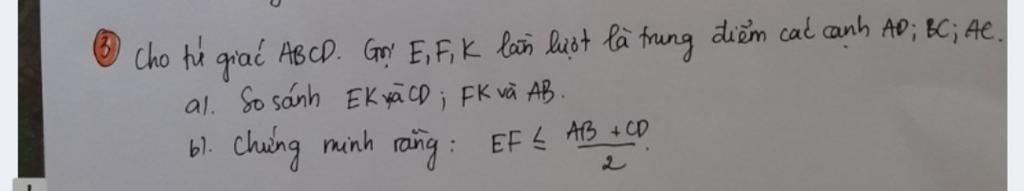 ③ Cho tứ giác ABCD. Gọi E, F, K lần lượt là trung điểm các cạnh AD; BC; AC.
a). So sánh EK và CD; FK và AB.
b). Chứng minh rằng: EF ≤ (AB + CD)/2.